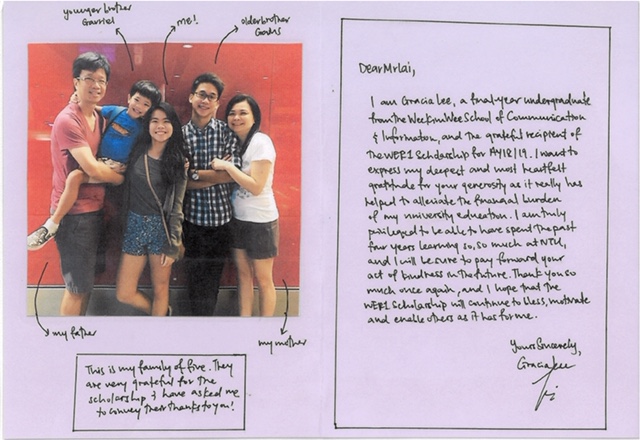 younger brother
me!
older brother
my father
my mother
This is my family of five. They
are very grateful for the
scholarship & have asked me
to convey their thanks to you!
Dear Mr Lai,
I am Gracia Lee, a final-year undergraduate
from the Wee Kim Wee School of Communication
& Information, and the grateful recipient of
the WER1 Scholarship for AY18/19. I want to
express my deepest and most heartfelt
gratitude for your generosity as it really has
helped to alleviate the financial burden
of my university education. I am truly
privileged to be able to have spent the past
four years learning so, so much at NTU,
and I will be sure to pay forward your
act of kindness in the future. Thank you so
much once again, and I hope that the
WER1 Scholarship will continue to bless, motivate
and enable others as it has for me.
Yours Sincerely,
Gracia Lee